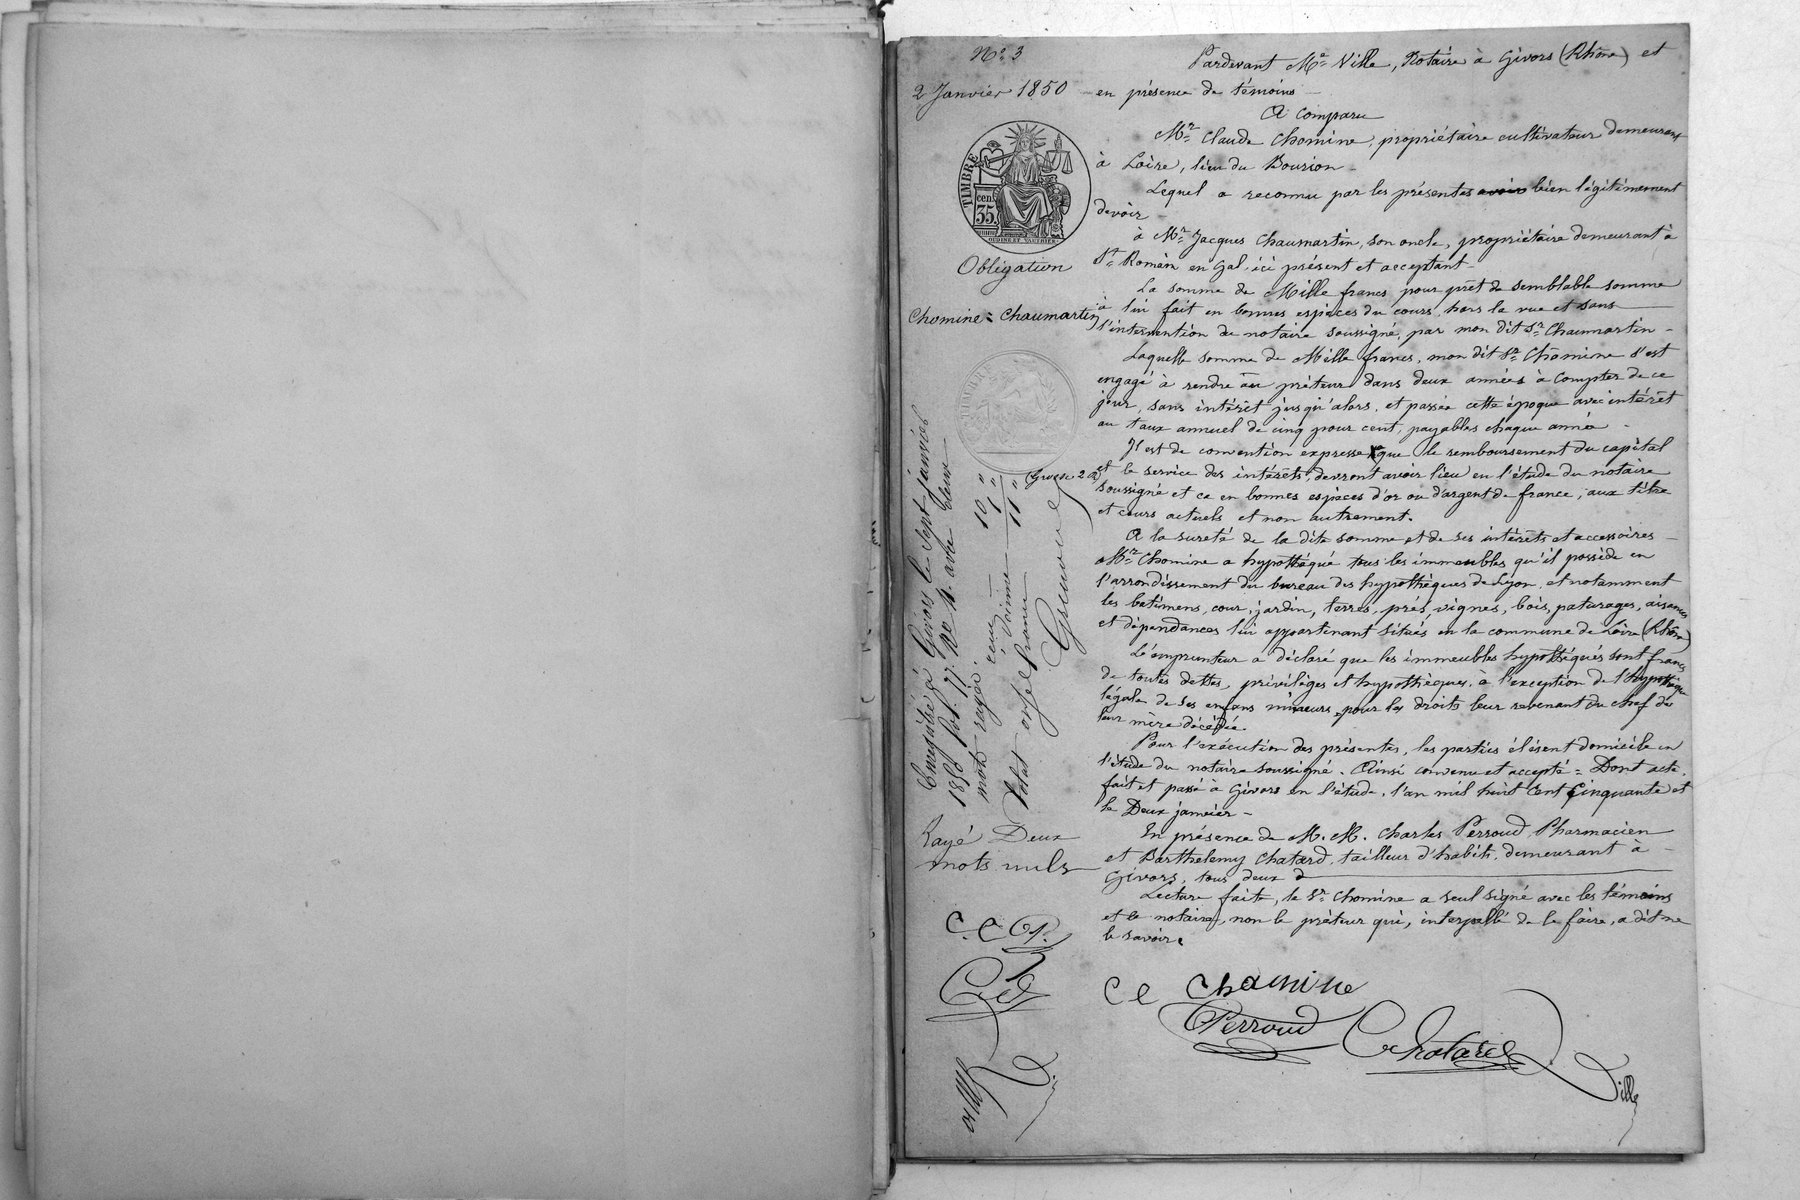 N.o 3
2 Janvier 1850
TIMBRE
cen.
35.
OUDINÉ ET GAUTHIER
Obligation
Chomine = Chaumartin
Pardevant M.e Ville, Notaire à Givors (Rhône) et
en présence de témoins
A comparu
M.r Claude Chomine, propriétaire cultivateur demeurant
à Loire, lieu du Bourion
Lequel a reconnu par les présentes avoir bien légitimement
devoir
à M.r Jacques Chaumartin, son oncle, propriétaire demeurant à
S.t Romain en gal, ici présent et acceptant
La somme de Mille francs pour prêt de semblable somme
à lui fait en bonnes espèces du cours, hors la vue et sans
l'intervention du notaire soussigné, par mon dit S.r Chaumartin
Laquelle somme de Mille francs, mon dit S.r Chomine s'est
engagé à rendre au prêteur dans deux années à compter de ce
jour, sans intérêt jusqu'alors, et passée cette époque avec intérêt
au taux annuel de cinq pour cent, payables chaque année
Il est de convention expresse que le remboursement du capital
et le service des intérêts, devront avoir lieu en l'étude du notaire
soussigné et ce en bonnes espèces d'or ou d'argent de france, aux titre
et cours actuels et non autrement.
A la sureté de la dite somme et de ses intérêts et accessoires
M.r Chomine a hypothéqué tous les immeubles qu'il possède en
l'arrondissement du bureau des hypothèques de Lyon, et notamment
les batimens, cour, jardin, terres, prés, vignes, bois, paturages, aisances
et dépendances lui appartenant situés en la commune de Loire (Rhône)
L'emprunteur a déclaré que les immeubles hypothéqués sont francs
de toutes dettes, privilèges et hypothèques, à l'exception de l'hypothèque
légale de ses enfans mineurs, pour les droits leur revenant du chef de
leur mère décédée.
Pour l'exécution des présentes, les parties élisent domicile en
l'étude du notaire soussigné. Ainsi convenu et accepté = Dont acte,
fait et passé à Givors en l'étude, l'an mil huit cent cinquante et
le Deux janvier
En présence de M. M. Charles Perroud, Pharmacien
et Barthelemy Chatard, tailleur d'habits, demeurant à
Givors, tous deux
Lecture faite, le S.r Chomine a seul signé avec les témoins
et le notaire, non le prêteur qui, interpellé de le faire, a dit ne
le savoir.
Enregistré à Givors le sept janvier
1850 fol. 77.
Rayé Deux
mots nuls
C. C
C. P.
C C Chamine
Perroud
Chatard
Ville